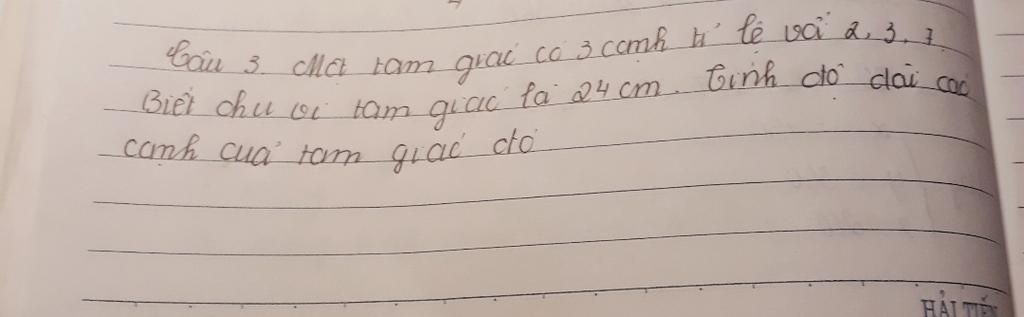 Câu 3. Một tam giác có 3 cạnh tỉ lệ với 2, 3, 7.
Biết chu vi tam giác là 24 cm. Tính độ dài các
cạnh của tam giác đó
HẢI TIẾN